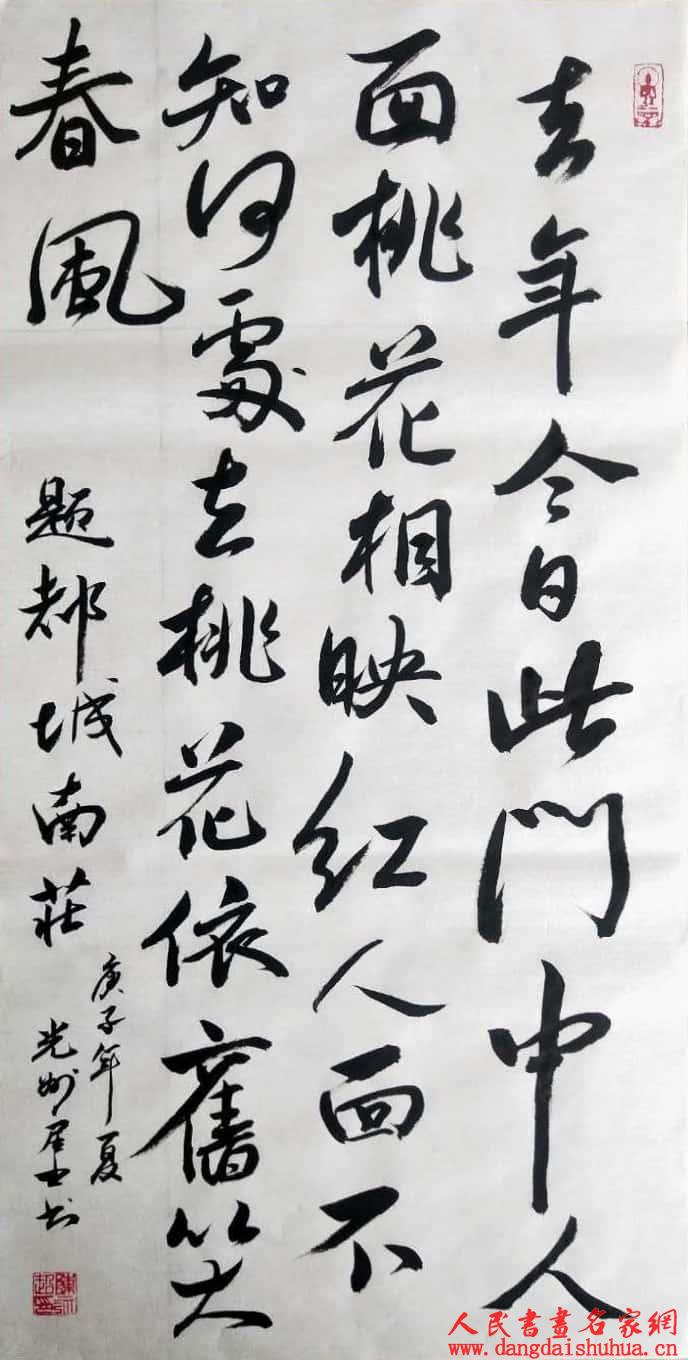 去年今日此門中人
面桃花相映红人面不
知何處去桃花依舊笑
春風
題都城南莊
庚子年夏
光州居士书
人民書畫名家網
www.dangdaishuhua.cn